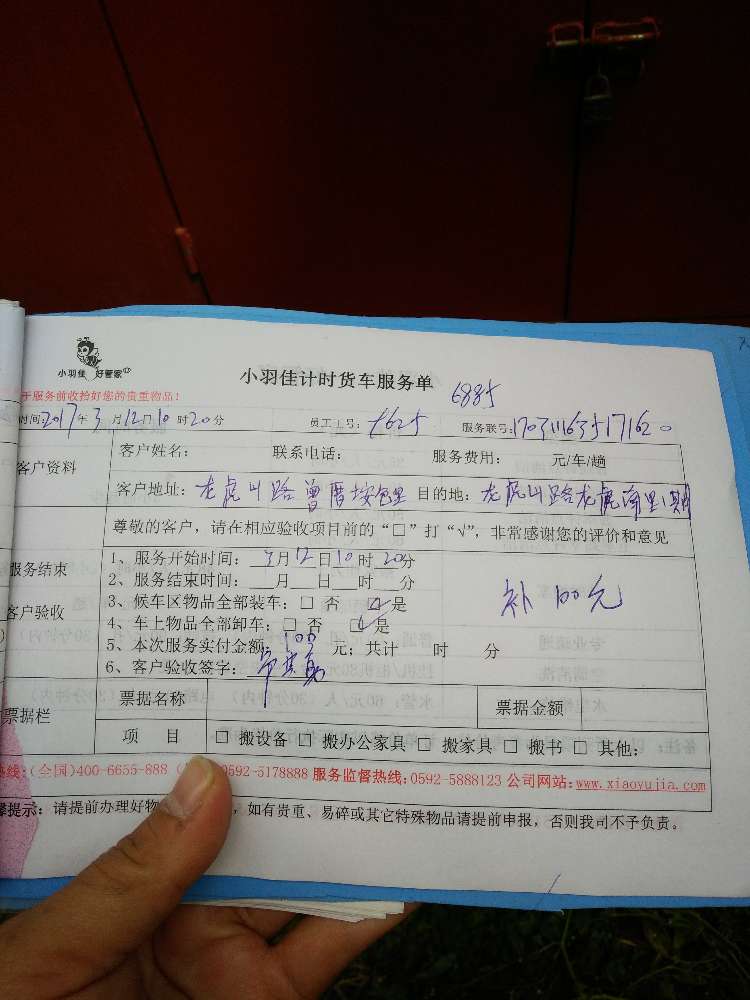 小羽佳 好管家
小羽佳计时货车服务单
6885
于服务前收拾好您的贵重物品!
时间:2017年3月12日10时20分 员工工号: 服务联号:
客户资料
客户姓名: 联系电话: 服务费用: 元/车/趟
客户地址:龙虎山路曾厝垵 目的地:龙虎山路龙虎
尊敬的客户，请在相应验收项目前的“□”打“√”，非常感谢您的评价和意见
服务结束
客户验收
1、服务开始时间:3月12日10时20分
2、服务结束时间:__月__日__时__分
3、候车区物品全部装车:□ 否 ☑ 是
4、车上物品全部卸车:□ 否 ☑ 是
5、本次服务实付金额:100元; 共计 时 分
6、客户验收签字:
补 100元
票据栏
票据名称 票据金额
项 目 □ 搬设备 □ 搬办公家具 □ 搬家具 □ 搬书 □ 其他:
热线:(全国)400-6655-888 0592-5178888 服务监督热线:0592-5888123 公司网站:www.xiaoyujia.com
提示: 请提前办理好物 ，如有贵重、易碎或其它特殊物品请提前申报，否则我司不予负责。